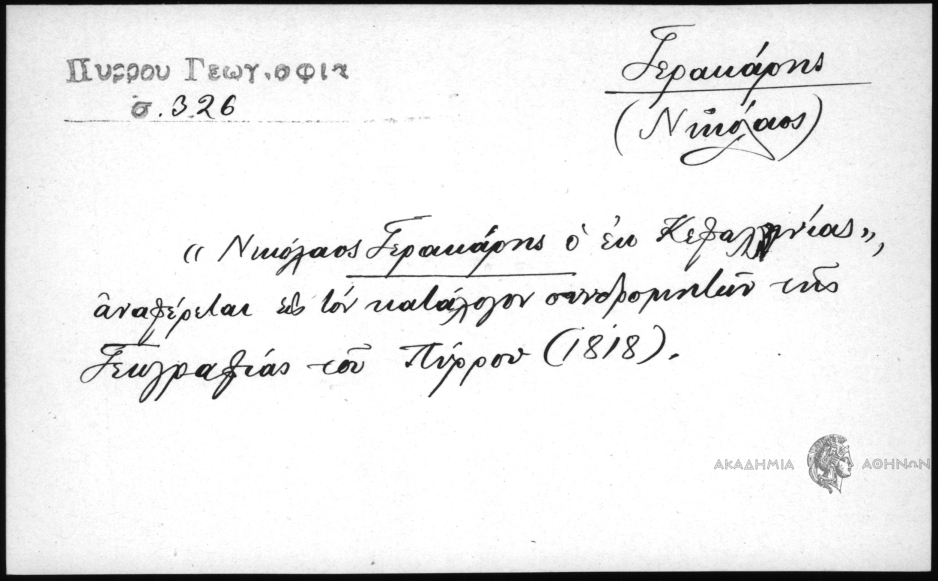 Πυρρου Γεωγραφια
σ. 326
Γερακάρης
(Νικόλαος)
« Νικόλαος Γερακάρης ὁ ἐκ Κεφαλληνίας»,
ἀναφέρεται εἰς τὸν κατάλογον συνδρομητῶν τῆς
Γεωγραφίας τοῦ Πύρρου (1818).
ΑΚΑΔΗΜΙΑ ΑΘΗΝΩΝ